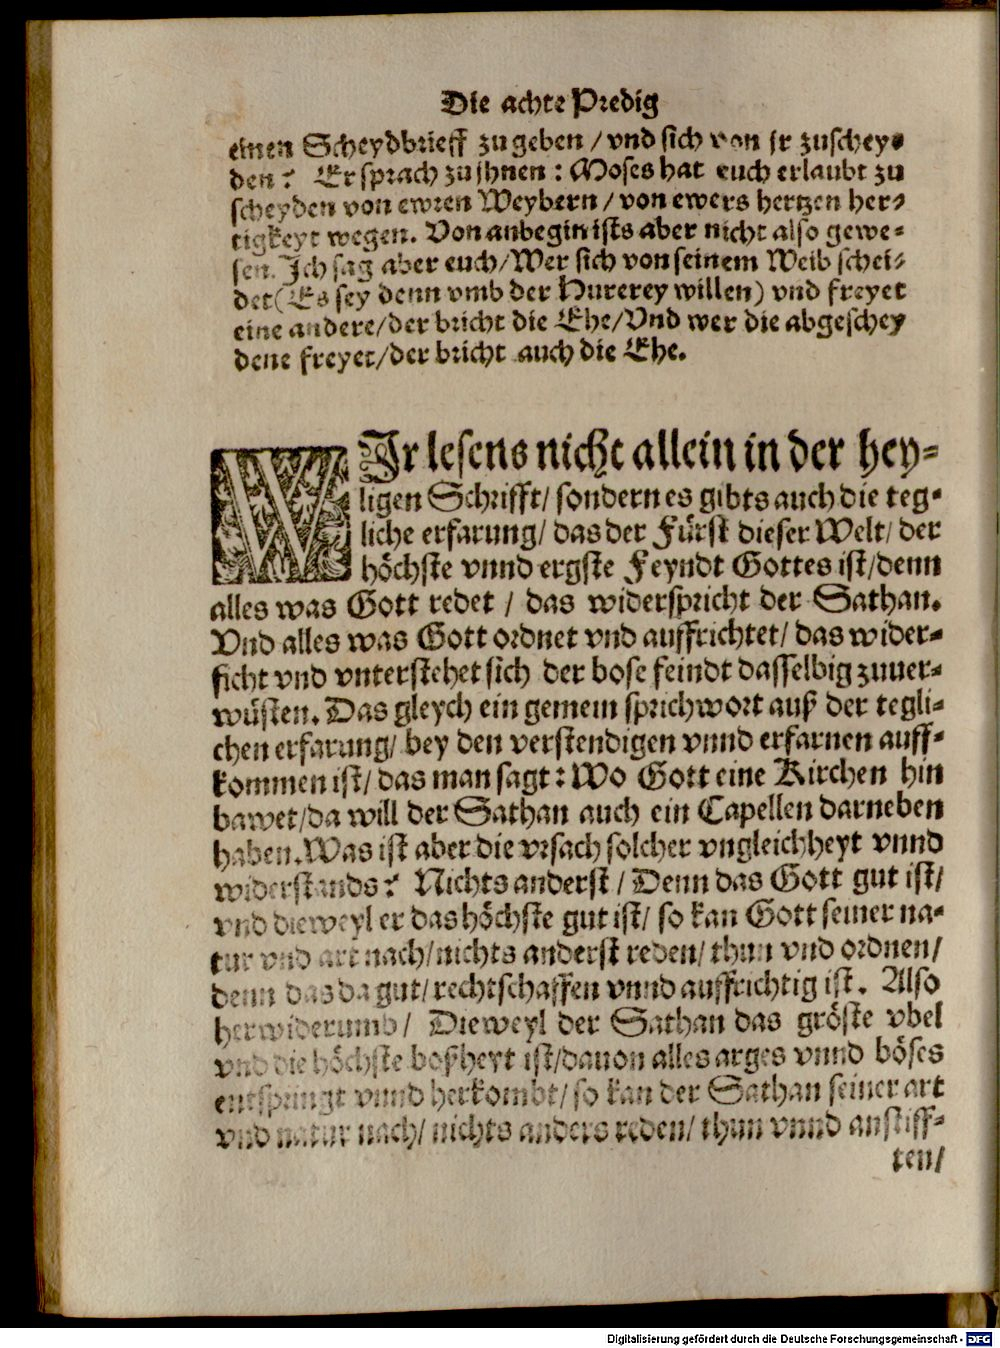 Die achte Predig
einen Scheydbrieff zu geben / vnd sich von jr zuschey-
den? Er sprach zu jhnen: Moses hat euch erlaubt zu
scheyden von ewren Weybern / von ewers hertzen her-
tigkeyt wegen. Von anbegin ists aber nicht also gewe-
sen. Ich sag aber euch/ Wer sich von seinem Weib schei-
det (Es sey denn vmb der Hurerey willen) vnd freyet
eine andere/ der bricht die Ehe/ Vnd wer die abgeschey
dene freyet/ der bricht auch die Ehe.
WIr lesens nicht allein in der hey-
ligen Schrifft/ sondern es gibts auch die teg-
liche erfarung/ das der Fürst dieser Welt/ der
höchste vnnd ergste Feyndt Gottes ist/ denn
alles was Gott redet / das widerspricht der Sathan.
Vnd alles was Gott ordnet vnd auffrichtet/ das wider-
ficht vnd vnterstehet sich der bose feindt dasselbig zuuer-
wüsten. Das gleych ein gemein sprichwort auß der tegli-
chen erfarung/ bey den verstendigen vnnd erfarnen auff-
kommen ist/ das man sagt: Wo Gott eine Kirchen hin
bawet/ da will der Sathan auch ein Capellen darneben
haben. Was ist aber die vrsach solcher vngleichheyt vnnd
widerstands? Nichts anderst / Denn das Gott gut ist/
vnd dieweyl er das höchste gut ist/ so kan Gott seiner na-
tur vnd art nach/ nichts anderst reden/ thun vnd ordnen/
denn das da gut/ rechtschaffen vnnd auffrichtig ist. Also
herwiderumb/ Dieweyl der Sathan das gröste vbel
vnd die höchste boßheyt ist/ dauon alles arges vnnd böses
entspringt vnnd herkombt/ so kan der Sathan seiner art
vnd natur nach/ nichts anders reden/ thun vnnd anstiff-
ten/
Digitalisierung gefördert durch die Deutsche Forschungsgemeinschaft - DFG